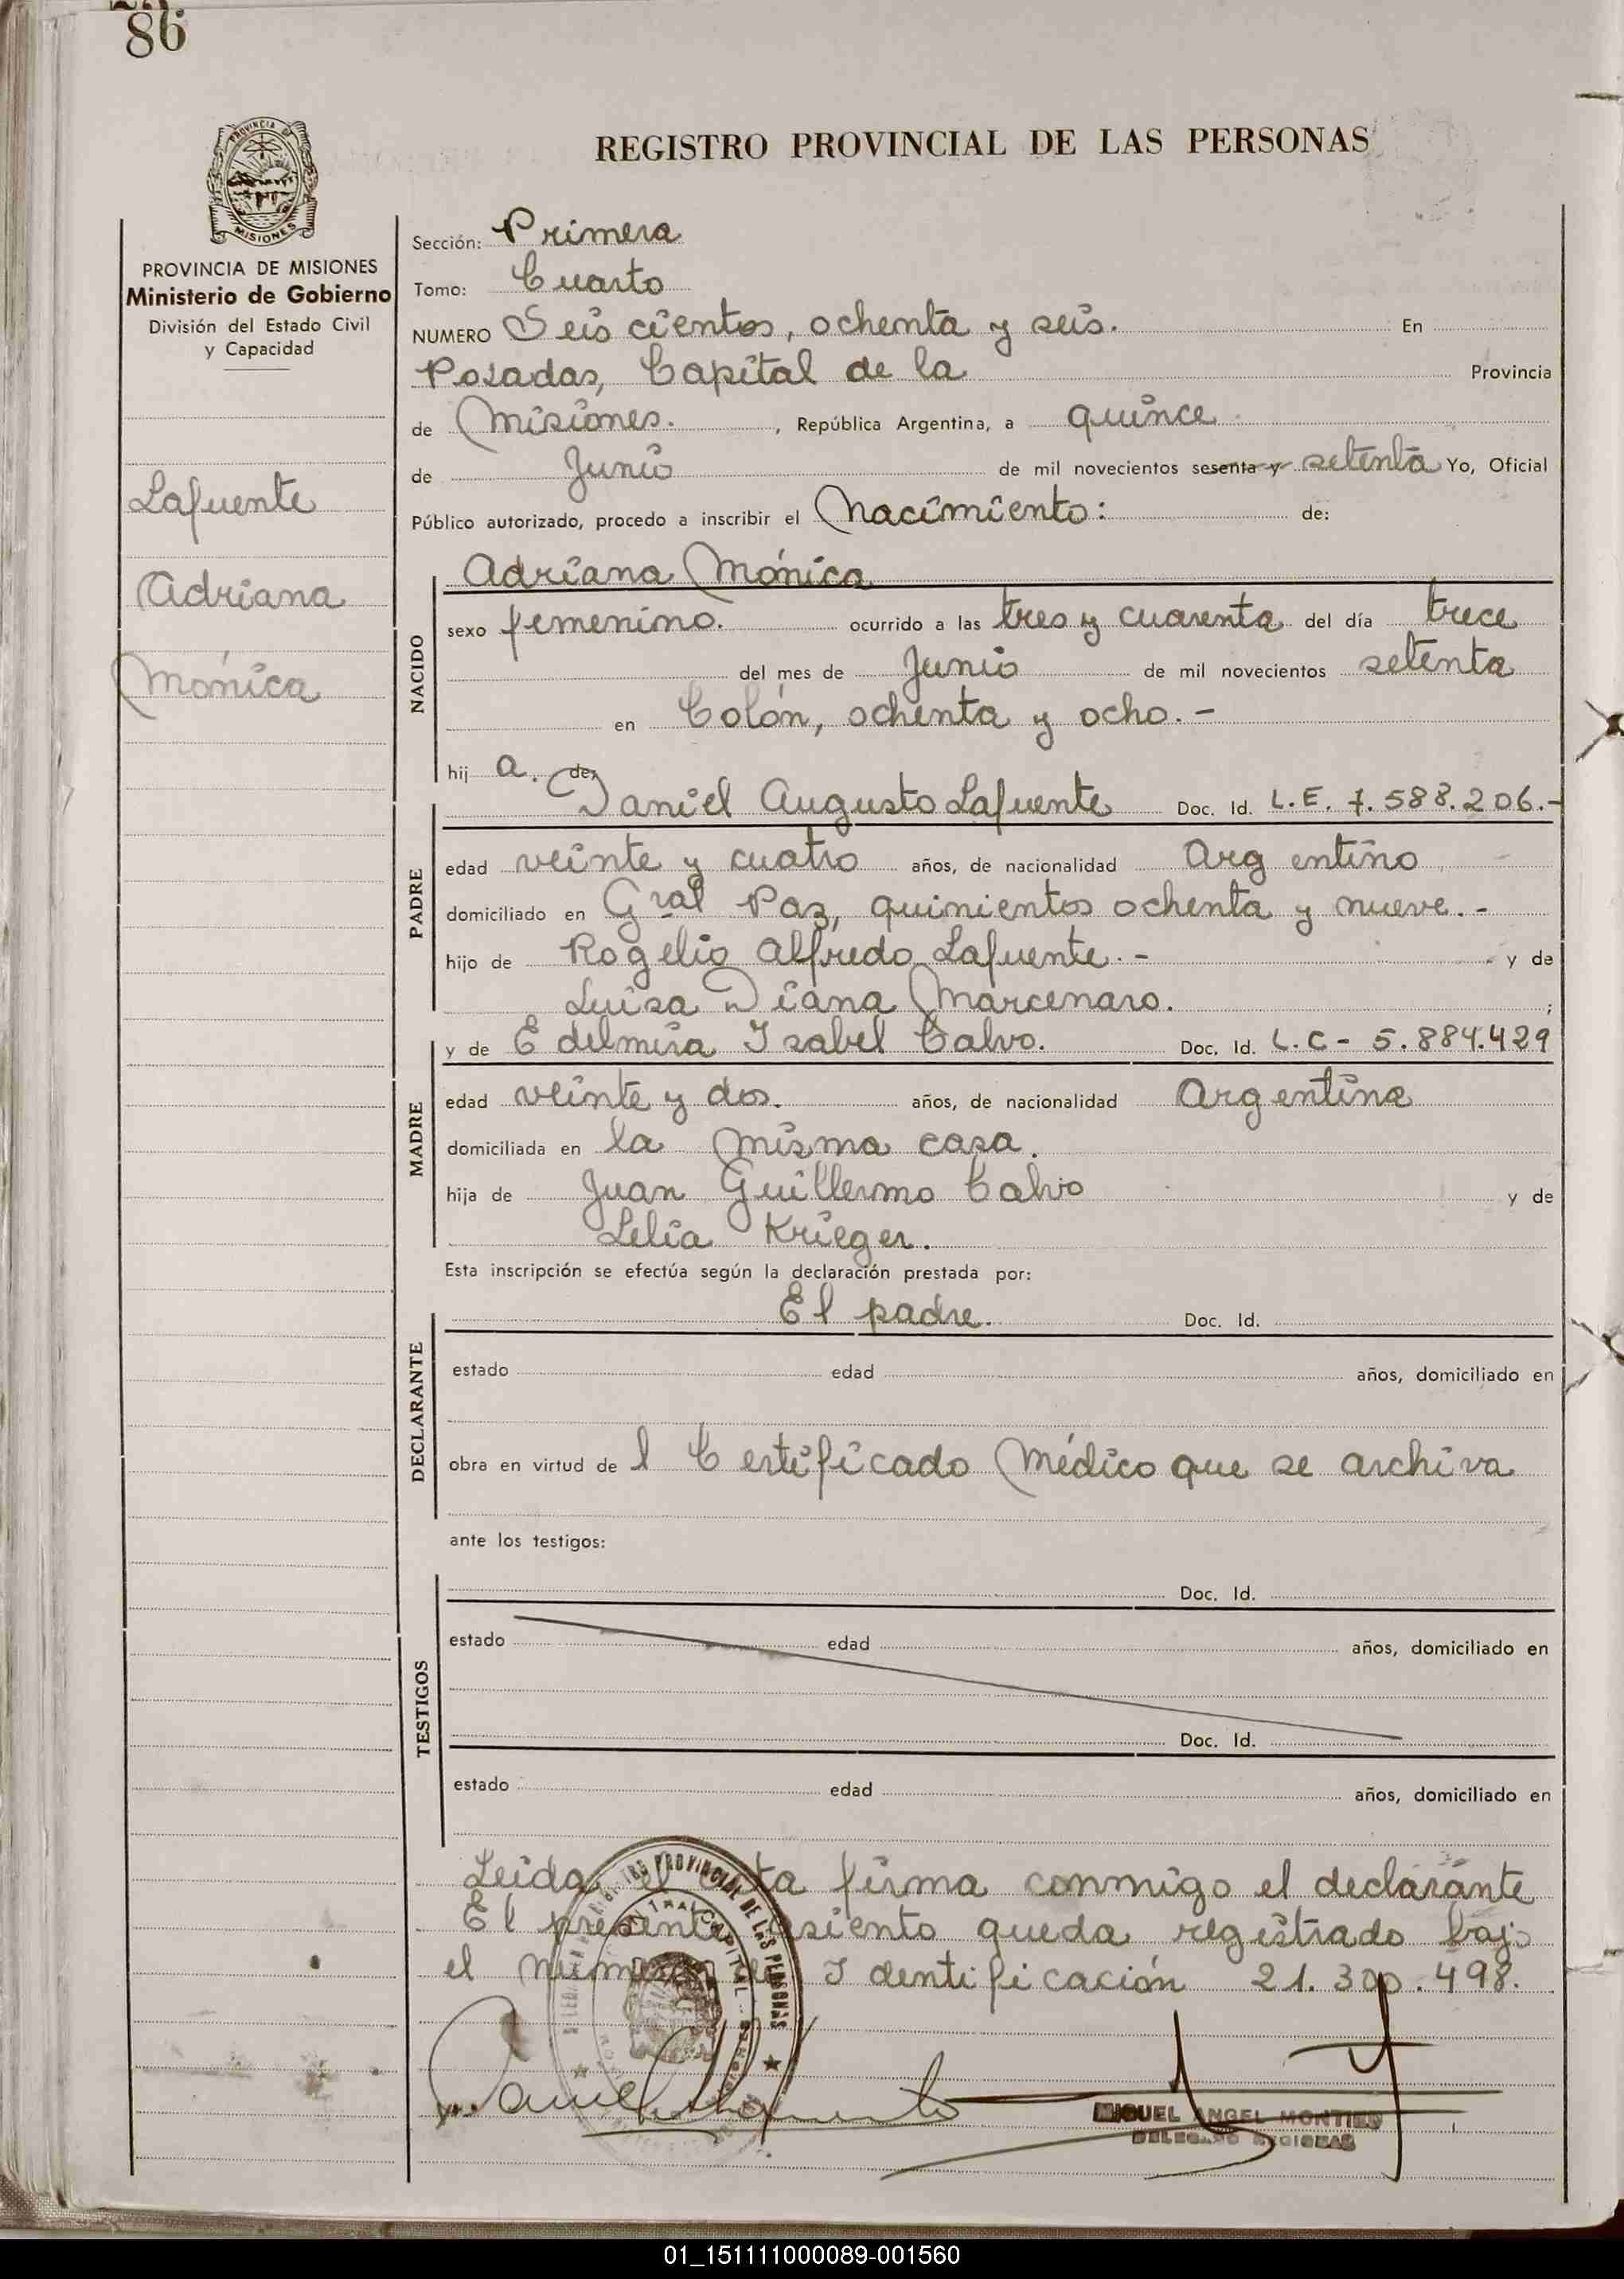 86
REGISTRO PROVINCIAL DE LAS PERSONAS
PROVINCIA DE
MISIONES
PROVINCIA DE MISIONES
Ministerio de Gobierno
División del Estado Civil
y Capacidad
Lafuente
Adriana
Mónica
Sección: Primera
Tomo: Cuarto
NUMERO Seis cientos, ochenta y seis. En
Posadas, Capital de la Provincia
de Misiones. , República Argentina, a quince
de Junio de mil novecientos sesenta y setenta Yo, Oficial
Público autorizado, procedo a inscribir el Nacimiento: de:
NACIDO
Adriana Mónica
sexo femenino. ocurrido a las tres y cuarenta del día trece
del mes de Junio de mil novecientos setenta
en Colón, ochenta y ocho. -
hij a. de:
PADRE
Daniel Augusto Lafuente Doc. Id. L.E. 7.588.206.-
edad veinte y cuatro años, de nacionalidad Argentino
domiciliado en Gral Paz, quinientos ochenta y nueve. -
hijo de Rogelio Alfredo Lafuente. - y de
Luisa Diana Marcenaro. ;
MADRE
y de Edelmira Isabel Calvo. Doc. Id. L.C - 5.884.429
edad veinte y dos. años, de nacionalidad Argentina
domiciliada en la misma casa.
hija de Juan Guillermo Calvo y de
Lelia Krieger.
Esta inscripción se efectúa según la declaración prestada por:
DECLARANTE
El padre. Doc. Id.
estado edad años, domiciliado en
obra en virtud de l Certificado Médico que se archiva
ante los testigos:
TESTIGOS
Doc. Id.
estado edad años, domiciliado en
Doc. Id.
estado edad años, domiciliado en
Leida el acta firma conmigo el declarante
El presente asiento queda registrado bajo
el numero de Identificación 21.300.498.
PROVINCIAL DE LAS PERSONAS
CENTRAL CAPITAL
MIGUEL ANGEL MONTIEL
DELEGADO
01_151111000089-001560